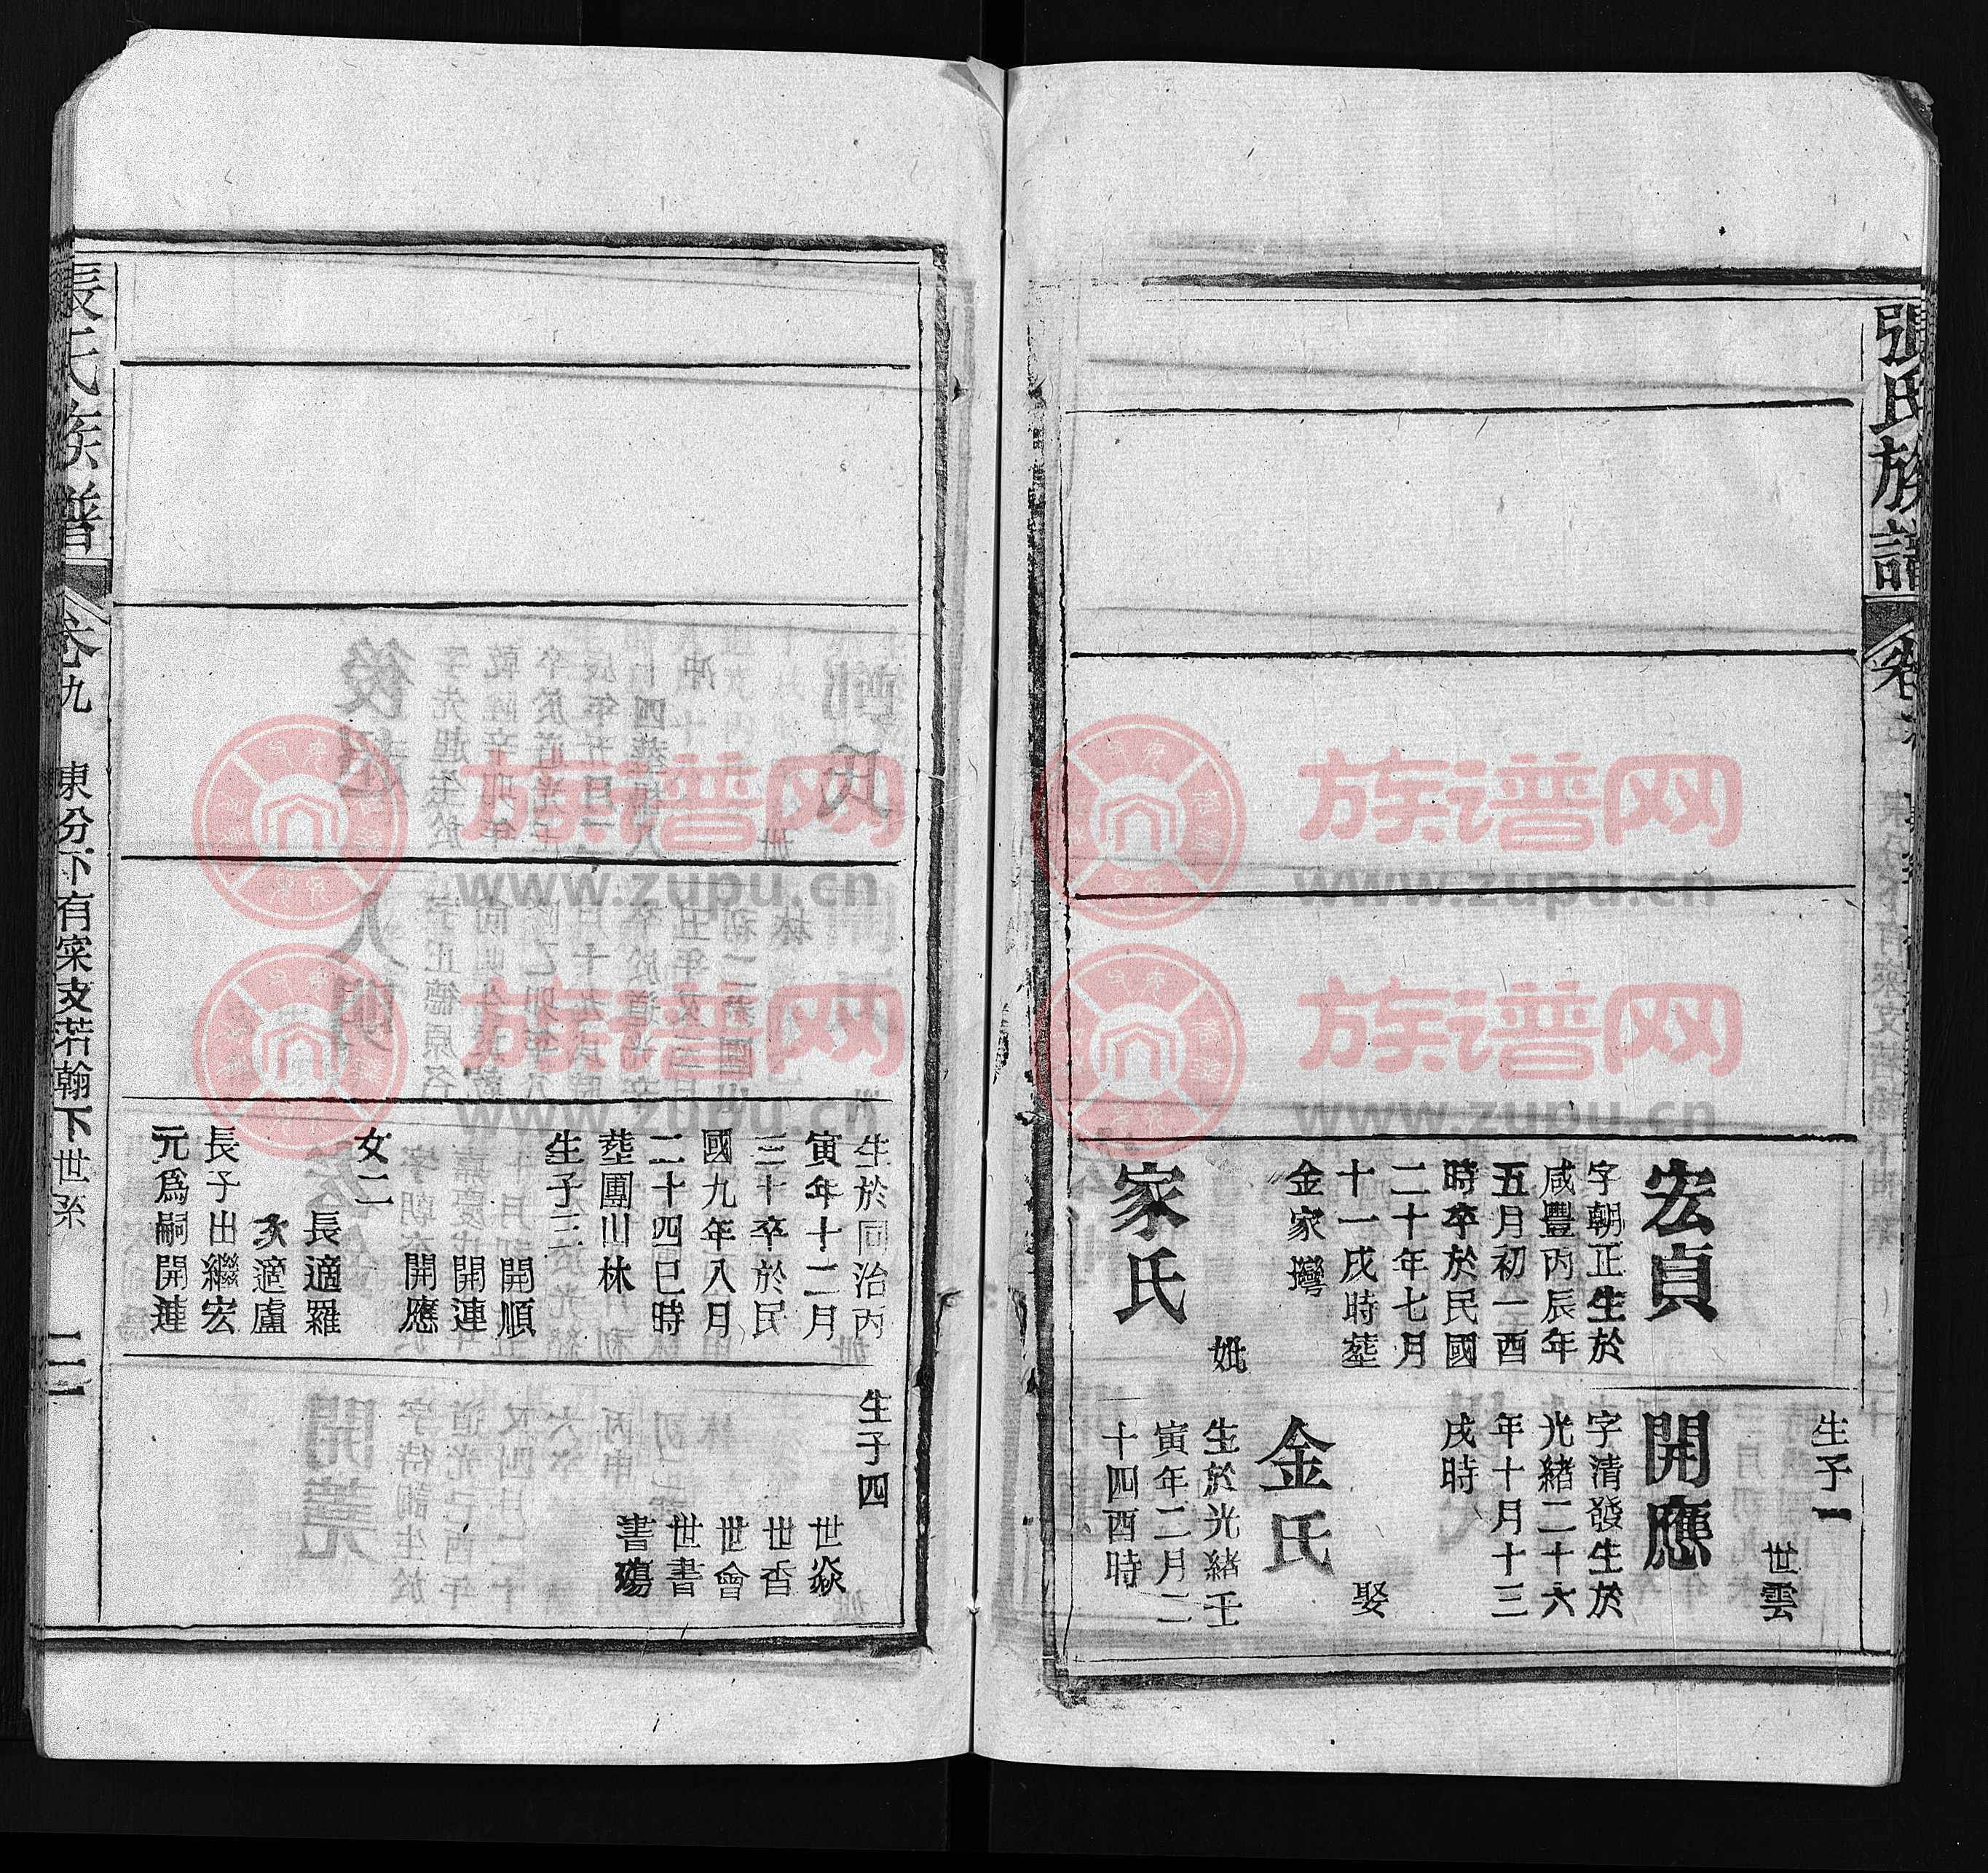 張氏族譜
生子一
世雲
宏貞
字朝正生於
咸豐丙辰年
五月初一酉
時卒於民國
二十年七月
十一戌時塟
金家灣
妣
家氏
開應
字清發生於
光緒二十六
年十月十三
戌時
娶
金氏
生於光緒壬
寅年二月二
十四酉時
生於同治丙
寅年十二月
三十卒於民
國九年八月
二十四巳時
塟團山林
生子三
開順
開連
開應
女二
長適羅
次適盧
長子出繼宏
元爲嗣開連
生子四
世焱
世香
世會
世書
書殤
張氏族譜
卷九
東分下有寀支若翰下世系
族谱网
www.zupu.cn
族谱网
www.zupu.cn
族谱网
www.zupu.cn
族谱网
www.zupu.cn